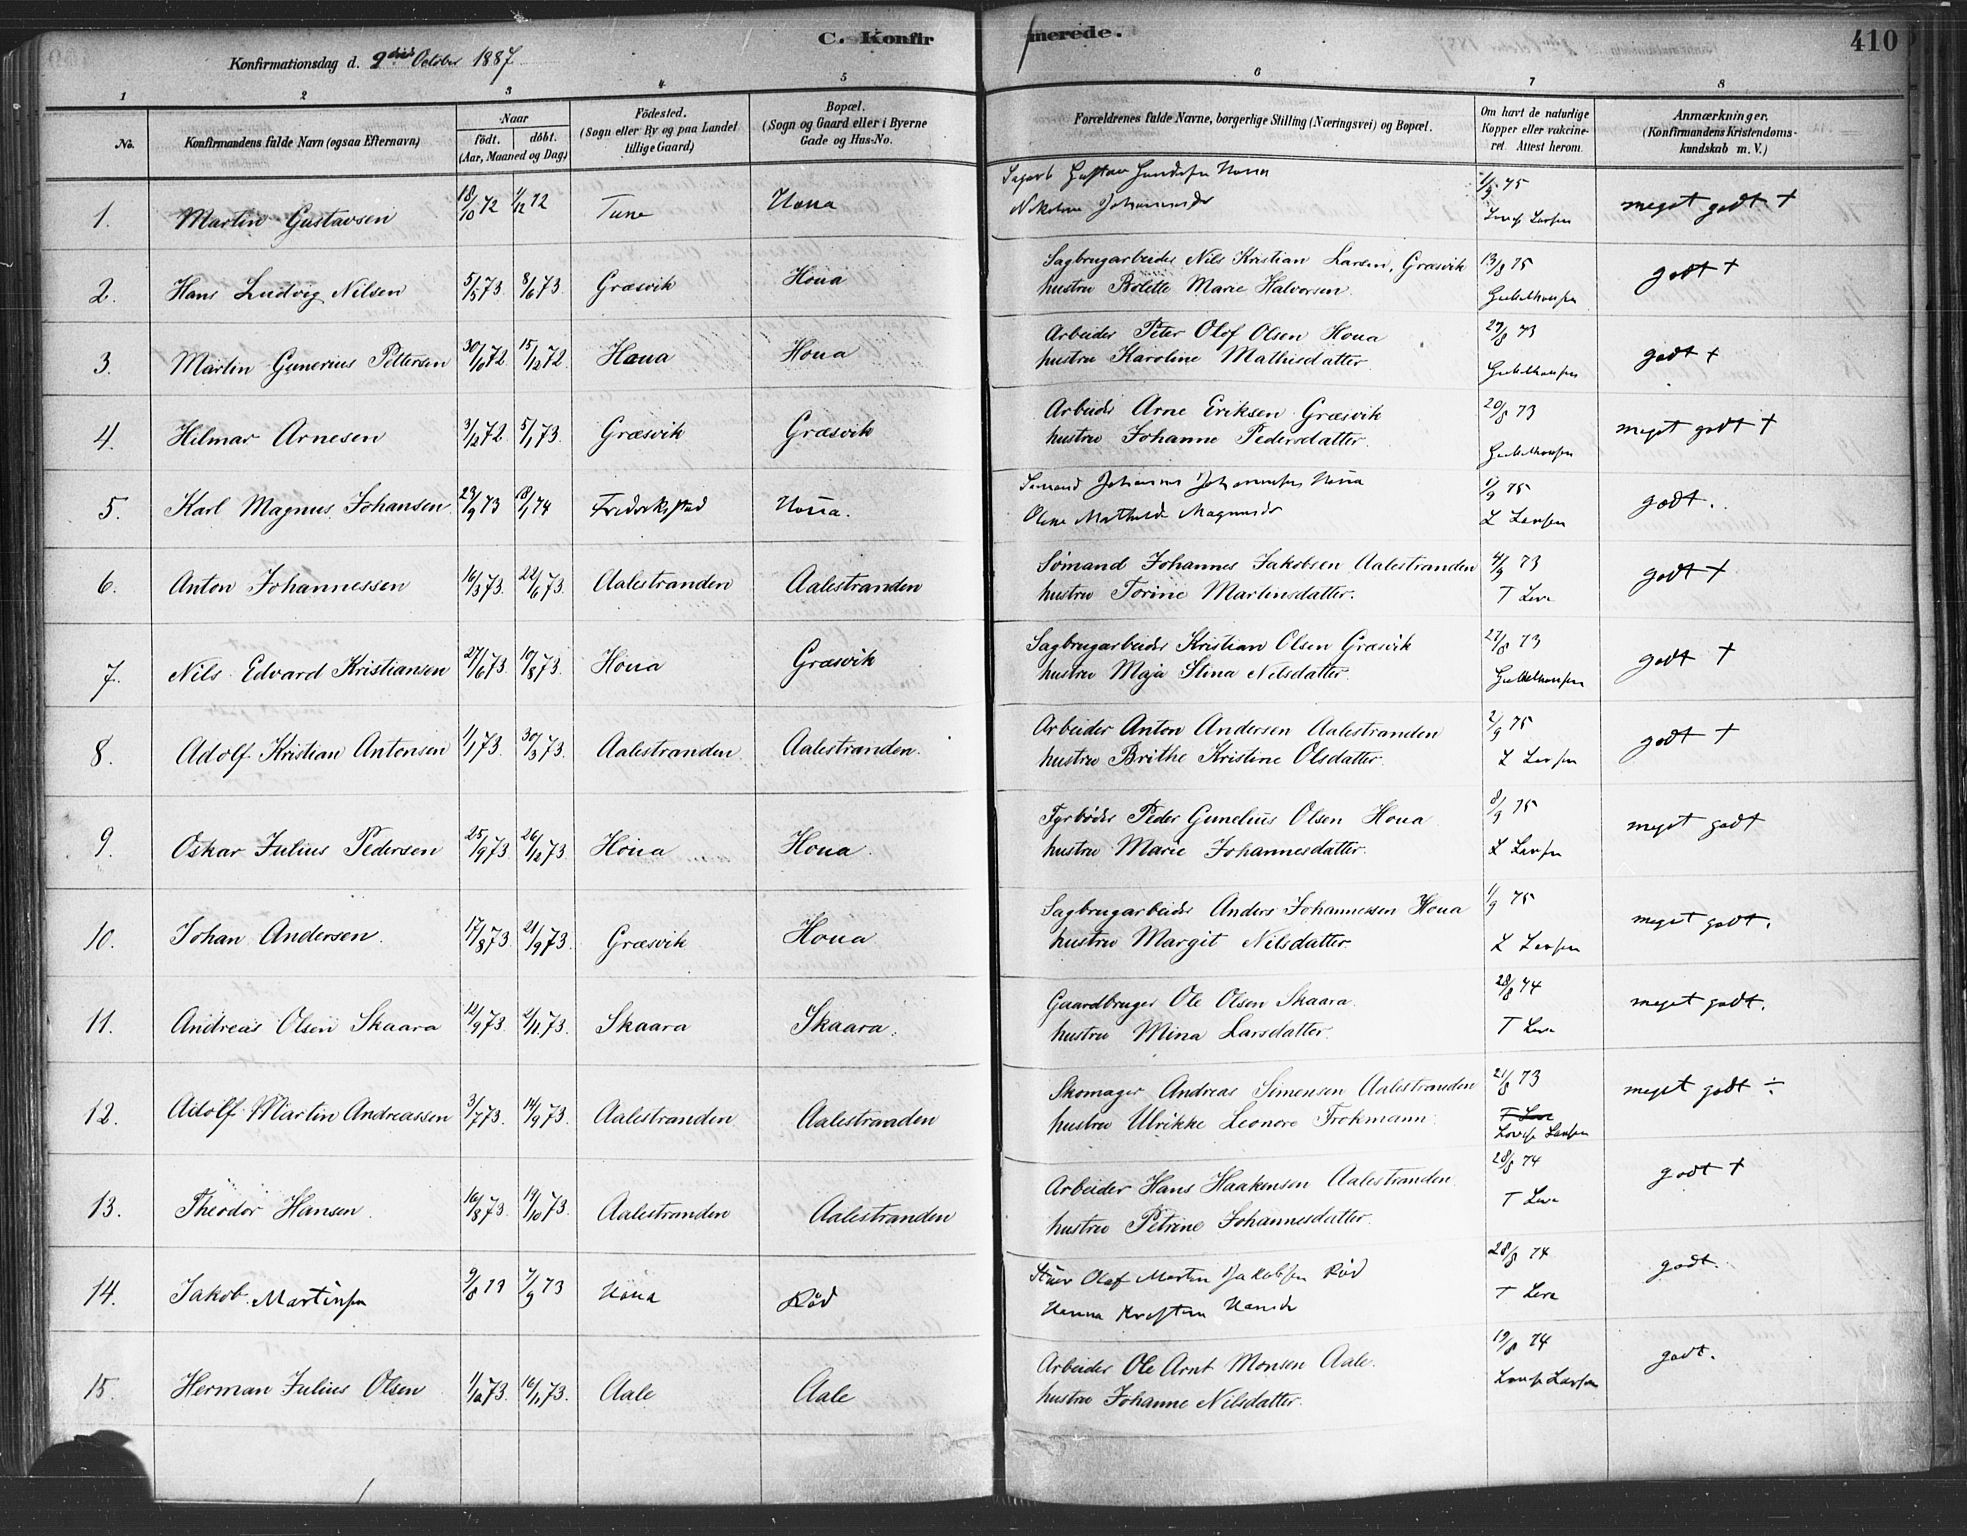 C. Konfirmerede.
410
Konfirmationsdag d. 9de October 1887
1 2 3 4 5 6 7 8
No. Konfirmandens fulde Navn (ogsaa Efternavn) Naar födt. döbt. (Aar, Maaned og Dag) Födested. (Sogn eller By og paa Landet tillige Gaard) Bopæl. (Sogn og Gaard eller i Byerne Gade og Hus-No. Forældrenes fulde Navne, borgerlige Stilling (Næringsvei) og Bopæl. Om havt de naturlige Kopper eller vakcineret. Attest herom. Anmærkninger. (Konfirmandens Kristendomskundskab m. V.)
1. Martin Gustavsen 18/10 72 1/12 72 Tune Houa Gustav Houa 1/9 75 meget godt +
Nikoline Johannesdr Lovise Larsen
2. Hans Ludvig Nilsen 5/5 73. 8/6 73. Græsvik Houa Sagbrugarbeider Nils Kristian Larsen, Græsvik 13/8 75 godt +
hustru Bolette Marie Halvorsen.
3. Martin Gunerius Pettersen 30/10 72 15/12 72 Houa Houa Arbeider Peter Olof Olsen Houa 27/8 73 godt +
hustru Karoline Mathisdatter.
4. Hilmar Arnesen 3/12 72 5/1 73. Græsvik Græsvik Arbeider Arne Eriksen Græsvik 20/8 73 meget godt +
hustru Johanne Pedersdatter.
5. Karl Magnus Johansen 23/9 73 18/1 74 Frederikstad Houa. Sømand Johannes Johannesen Houa 1/9 75 godt.
Oline Mathilde Magnusdr L Larsen
6. Anton Johannessen 16/3 73. 22/6 73. Aalestranden Aalestranden Sømand Johannes Jakobsen Aalestranden 4/9 73 godt +
hustru Torine Martinsdatter. T Leve
7. Nils Edvard Kristiansen 27/6 73. 10/8 73. Houa Græsvik Sagbrugarbeider Kristian Olsen Græsvik 27/8 73 godt +
hustru Maja Stina Nilsdatter.
8. Adolf Kristian Antonsen 1/1 73. 30/3 73. Aalestranden Aalestranden. Arbeider Anton Andersen Aalestranden 2/9 75 godt +
hustru Brithe Kristine Olsdatter. L Larsen
9. Oskar Julius Pedersen 25/9 73 26/12 73. Houa Houa. Fyrbøder Peder Gunelius Olsen Houa. 8/9 75 meget godt
hustru Marie Johannesdatter. L Larsen
10. Johan Andersen. 17/8 73. 21/9 73. Græsvik Houa Sagbrugarbeider Anders Johannessen Houa 1/9 75 meget godt.
hustru Margit Nilsdatter. L Larsen
11. Andreas Olsen Skaara 12/9 73. 2/11 73. Skaara Skaara. Gaardbruger Ole Olsen Skaara. 28/8 74 meget godt.
hustru Mina Larsdatter. T Leve
12. Adolf Martin Andreassen 3/7 73. 14/9 73. Aalestranden Aalestranden Skomager Andreas Simensen Aalestranden 21/8 73 meget godt ÷
hustru Ulrikke Leonore Trokmann. T Leve
Lovise Larsen
13. Theodor Hansen. 16/8 73. 19/10 73. Aalestranden Aalestranden Arbeider Hans Haakensen Aalestranden. 28/8 74 godt +
hustru Petrine Johannesdatter. T Leve
14. Jakob Martinsen 9/8 73 7/9 73 Houa Rød Olaf Martin Jakobsen Rød 28/8 74 godt.
Hanna Kristine Hansdr T Leve
15. Herman Julius Olsen 16/11 73. Aale Aale Arbeider Ole Arnt Monsen Aale. 19/8 74 godt.
hustru Johanne Nilsdatter. Lovise Larsen